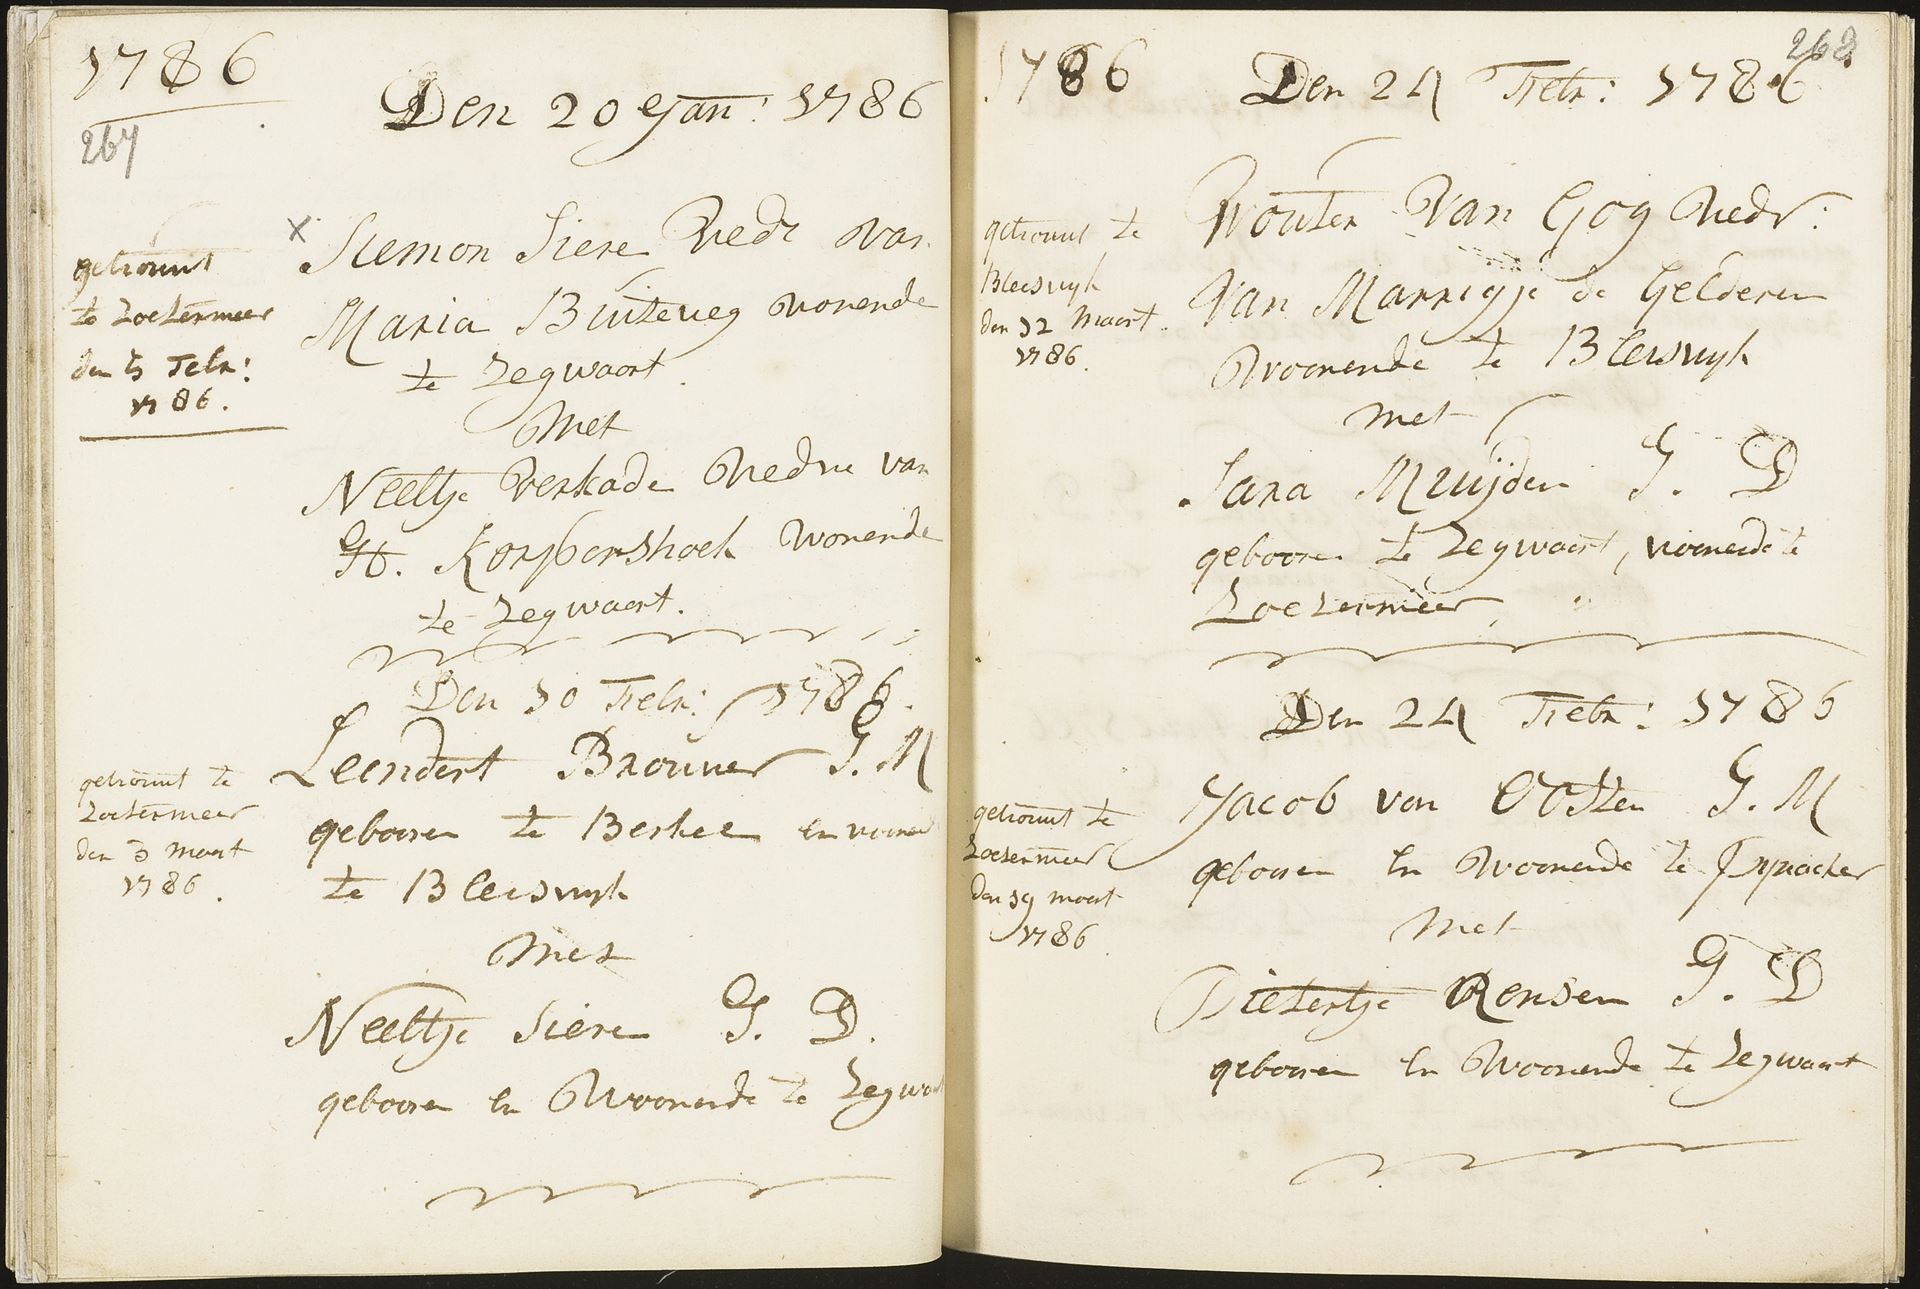 1786
267
Den 20 Jan: 1786
getrouwt
te Zoetermeer
den 5 Febr:
1786.
x Siemon Siere Wedr van
Maria Buiteweg wonende
te Zegwaart
Met
Neeltje Verkade Wedue van
H. Korpershoek wonende
te Zegwaart.
Den 10 Febr: 1786.
getrouwt te
Zoetermeer
den 3 Maart
1786.
Leendert Brouwer J. M
geboren te Berkel en
te Bleiswyk
Met
Neeltje Siere J. D.
geboren en Woonende te
1786
268
Den 24 Febr: 1786
getrouwt te
Bleiswyk
den 12 Maart
1786.
Wouter Van Gog Wedr:
Van Marrigje de Gelderen
Woonende te Bleiswyk
met
Sara Muijden J. D
geboren te Zegwaart, woonende te
Zoetermeer
Den 24 Febr: 1786
getrouwt te
Zoetermeer
den 19 maart
1786
Jacob van Oosten J. M
geboren en Woonende te Pynacker
Met
Pietertje Rensen J. D
geboren en Woonende te Zegwaart